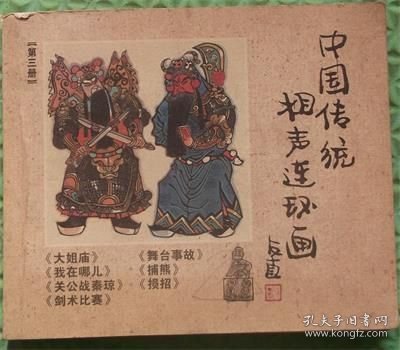 【第三册】
中国传统
相声连环画
《大姐庙》
《我在哪儿》
《关公战秦琼》
《剑术比赛》
《舞台事故》
《捕熊》
《损招》
孔夫子旧书网